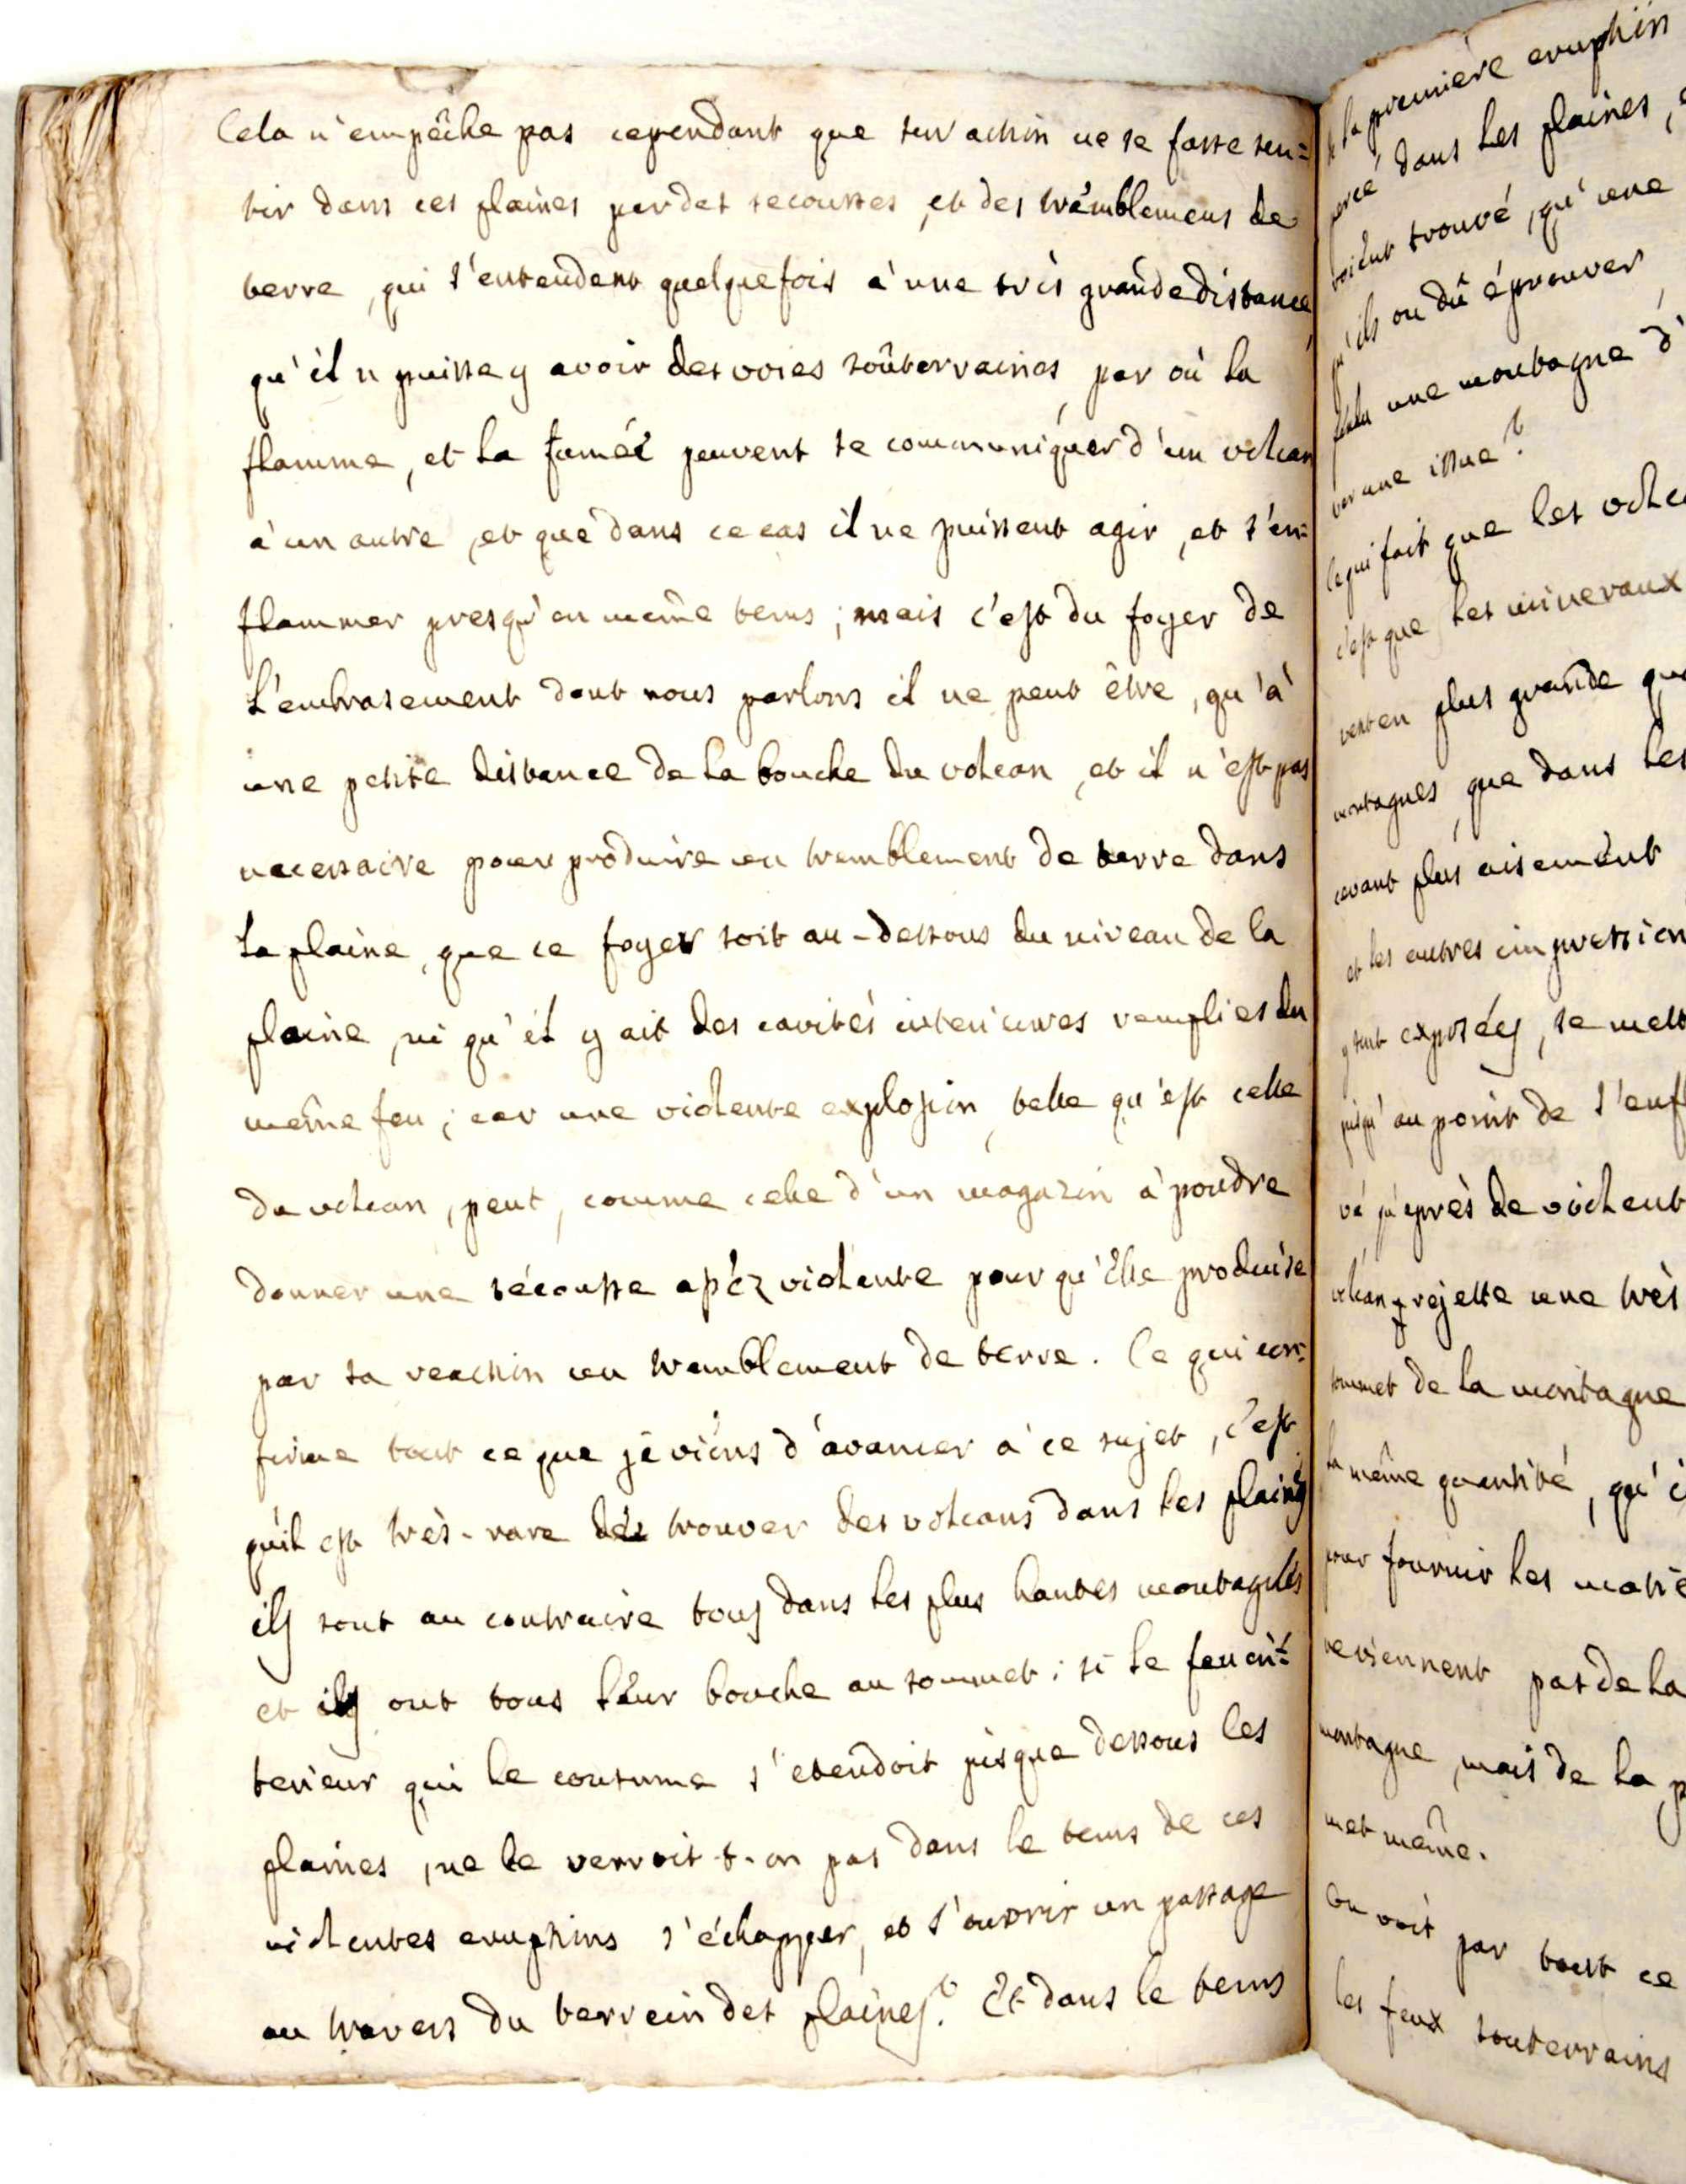 Cela n'empêche pas cependant que son action ne se fasse sen=
tir dans ces plaines par des secousses, et des trêmblemens de
terre, qui s'entendent quelquefois à une très grande distance,
qu'il n puisse y avoir des voies soûterraines, par où la
flamme, et la fumée peuvent se communiquer d'un volcan
à un autre, et que dans ce cas il ne puissent agir, et s'en=
flammer presqu'en même tems; mais c'est du foyer de
l'embrasement dont nous parlons il ne peut être, qu'à
une petite distance de la bouche du volcan, et il n'est pas
necessaire pour produire un tremblement de terre dans
la plaine, que ce foyer soit au-dessous du niveau de la
plaine, ni qu'il y ait des cavités interieures remplies du
même feu; car une violente explosion, telle qu'est celle
du volcan, peut, comme celle d'un magazin à poudre
donner une sécousse assez violente pour qu'elle produise
par sa reaction un tremblement de terre. Ce qui con=
firme tout ce que je viens d'avancer à ce sujet, c'est
qu'il est très-rare de trouver des volcans dans les plaines
ils sont au contraire tous dans les plus hautes montagnes
et ils ont tous leur bouche au sommet: si le feu in=
terieur qui le consume s'etendoit jusque dessous les
plaines, ne le verroit-t-on pas dans le tems de ces
violentes eruptions s'échapper, et s'ouvrir un passage
au travers du terrein des plaines? Et dans le tems
de la première eruption
percé dans les plaines,
roient trouvé, qu'une
qu'ils on dû éprouver
une montagne d'
ver une issue?
Ce qui fait que les volca
c'est que les mineraux
vent en plus grande qua
montagnes, que dans les
cevant plus aisement
et les autres impression
y sont exposées, se mett
jusqu'au point de s'enf
vé qu'après de violent
volcan rejette une très
sommet de la montagne
la même quantité, qu'i
pour fournir les matie
reviennent pas de la
montagne, mais de la p
met même.
On voit par tout ce
les feux souterrains